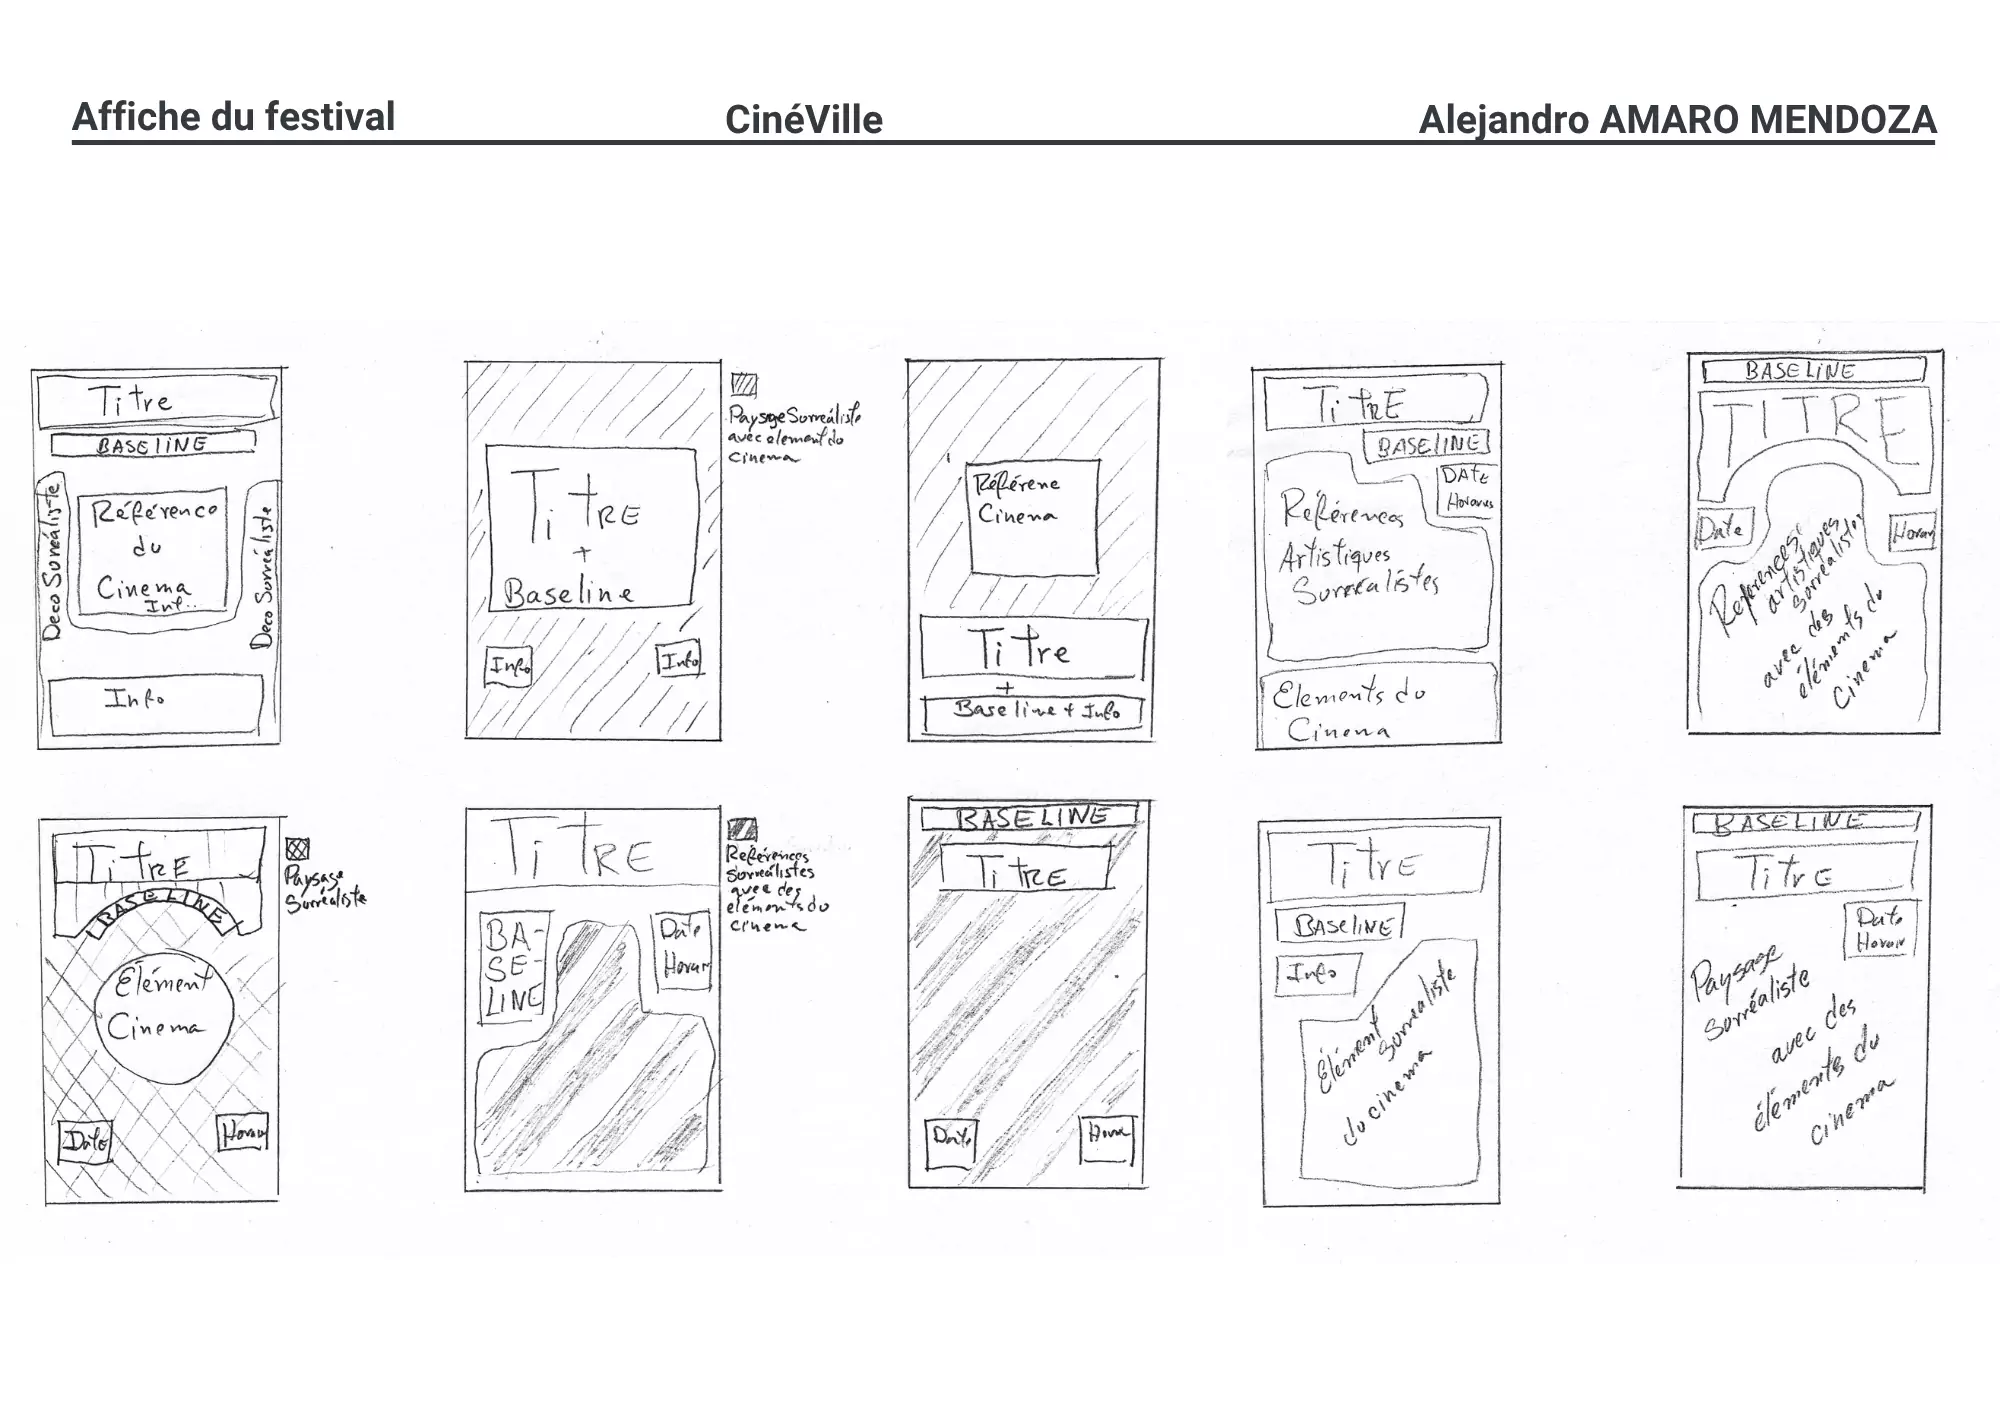 Affiche du festival
CinéVille
Alejandro AMARO MENDOZA
Titre
BASELINE
Deco Sorréaliste
Référence
du
Cinema
Inf..
Deco Sorréaliste
Info
Titre
+
Baseline
Info
Info
Paysage Surréaliste
avec element du
cinema
Référene
Cinema
Titre
+
Baseline + Info
TitRE
BASELINE
DATE
Références
Artistiques
Surréalistes
Elements du
Cinema
BASELINE
TITRE
Date
Horair
References
artistiques
sorréalistes
avec des
éléments du
cinema
TitRE
BASELINE
Elément
Cinema
Date
Paysage
Surréaliste
TitRE
BA-
SE-
LINE
Date
Horair
Références
Surréalistes
avec des
eléments du
cinema
BASELINE
TitRE
Date
TitrE
BASELINE
Info
Elément
Surréaliste
du cinema
BASELINE
TitrE
Date
Horair
Paysage
Surréaliste
avec des
éléments du
cinema